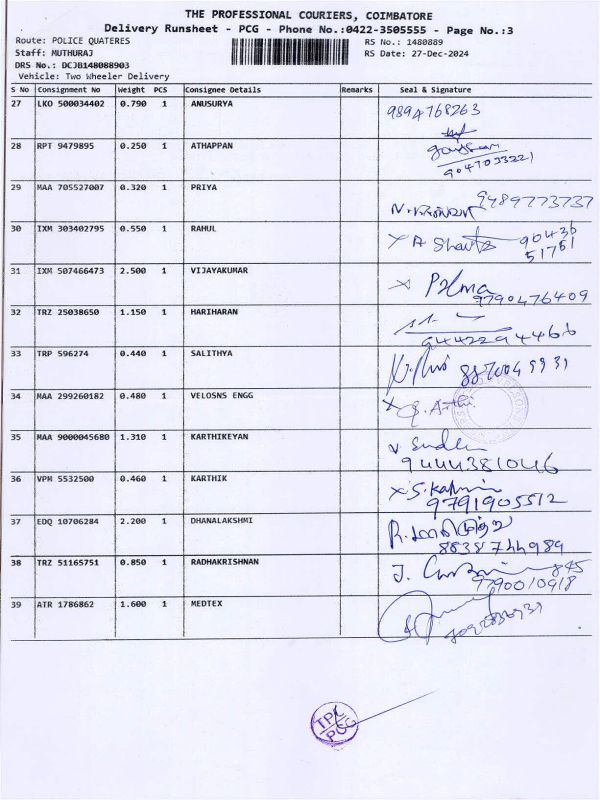 THE PROFESSIONAL COURIERS, COIMBATORE
Delivery Runsheet - PCG - Phone No.:0422-3505555 - Page No.:3
Route: POLICE QUATERES
RS No.: 1480889
Staff: MUTHURAJ
RS Date: 27-Dec-2024
DRS No.: DCJB148088903
Vehicle: Two Wheeler Delivery
S No Consignment No Weight PCS Consignee Details Remarks Seal & Signature
27 LKO 500034402 0.790 1 ANUSURYA 9894768263
28 RPT 9479895 0.250 1 ATHAPPAN
9047033221
29 MAA 705527007 0.320 1 PRIYA 9489773737
30 IXM 303402795 0.550 1 RAHUL 90436
51761
31 IXM 507466473 2.500 1 VIJAYAKUMAR
9790476409
32 TRZ 25038650 1.150 1 HARIHARAN
9442294466
33 TRP 596274 0.440 1 SALITHYA 8870049931
34 MAA 299260182 0.480 1 VELOSNS ENGG
35 MAA 9000045680 1.310 1 KARTHIKEYAN
9444381046
36 VPM 5532500 0.460 1 KARTHIK
9791905512
37 EDQ 10706284 2.200 1 DHANALAKSHMI
8838744989
38 TRZ 51165751 0.850 1 RADHAKRISHNAN 845
9790010918
39 ATR 1786862 1.600 1 MEDTEX
TPC
PCG